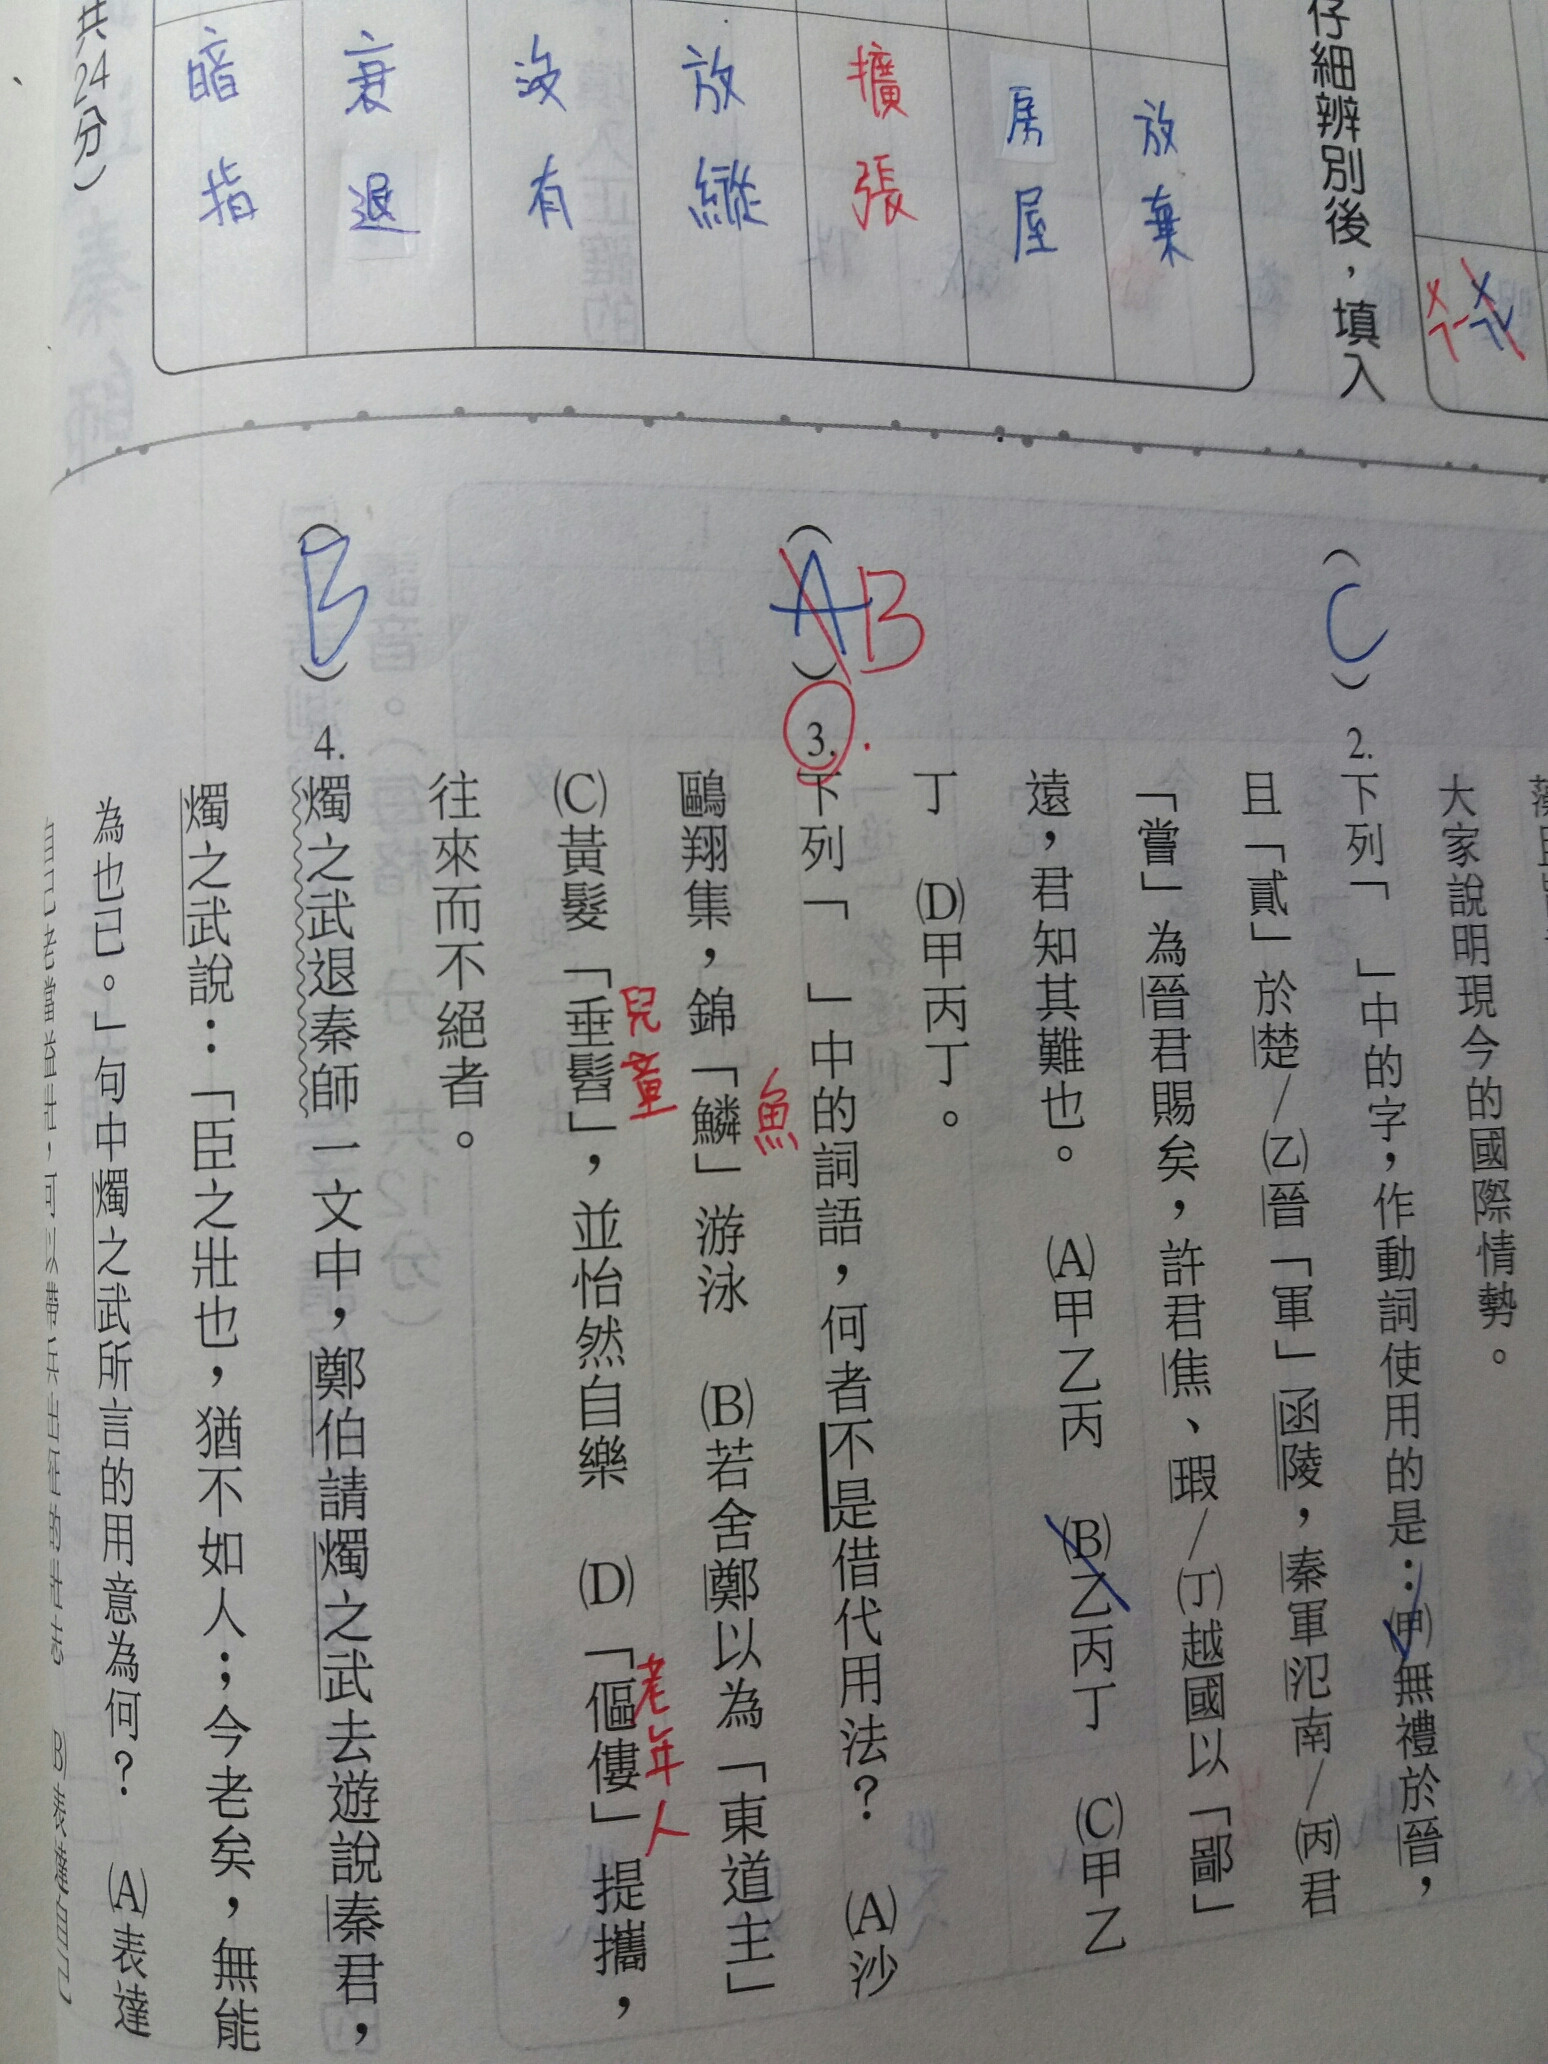 仔細辨別後，填入
放棄
房屋
擴張
放縱
沒有
衰退
暗指
共24分）
大家說明現今的國際情勢。
（C）2.下列「　」中的字，作動詞使用的是：㈙無禮於晉，
且「貳」於楚／㈚晉「軍」函陵，秦軍氾南／㈛君
「嘗」為晉君賜矣，許君焦、瑕／㈜越國以「鄙」
遠，君知其難也。　(A)甲乙丙　(B)乙丙丁　(C)甲乙
丁　(D)甲丙丁。
（A）B 3.下列「　」中的詞語，何者不是借代用法？　(A)沙
鷗翔集，錦「鱗」游泳　(B)若舍鄭以為「東道主」
魚
(C)黃髮「垂髫」，並怡然自樂　(D)「傴僂」提攜，
兒童
老年人
往來而不絕者。
（B）4.燭之武退秦師一文中，鄭伯請燭之武去遊說秦君，
燭之武說：「臣之壯也，猶不如人；今老矣，無能
為也已。」句中燭之武所言的用意為何？　(A)表達